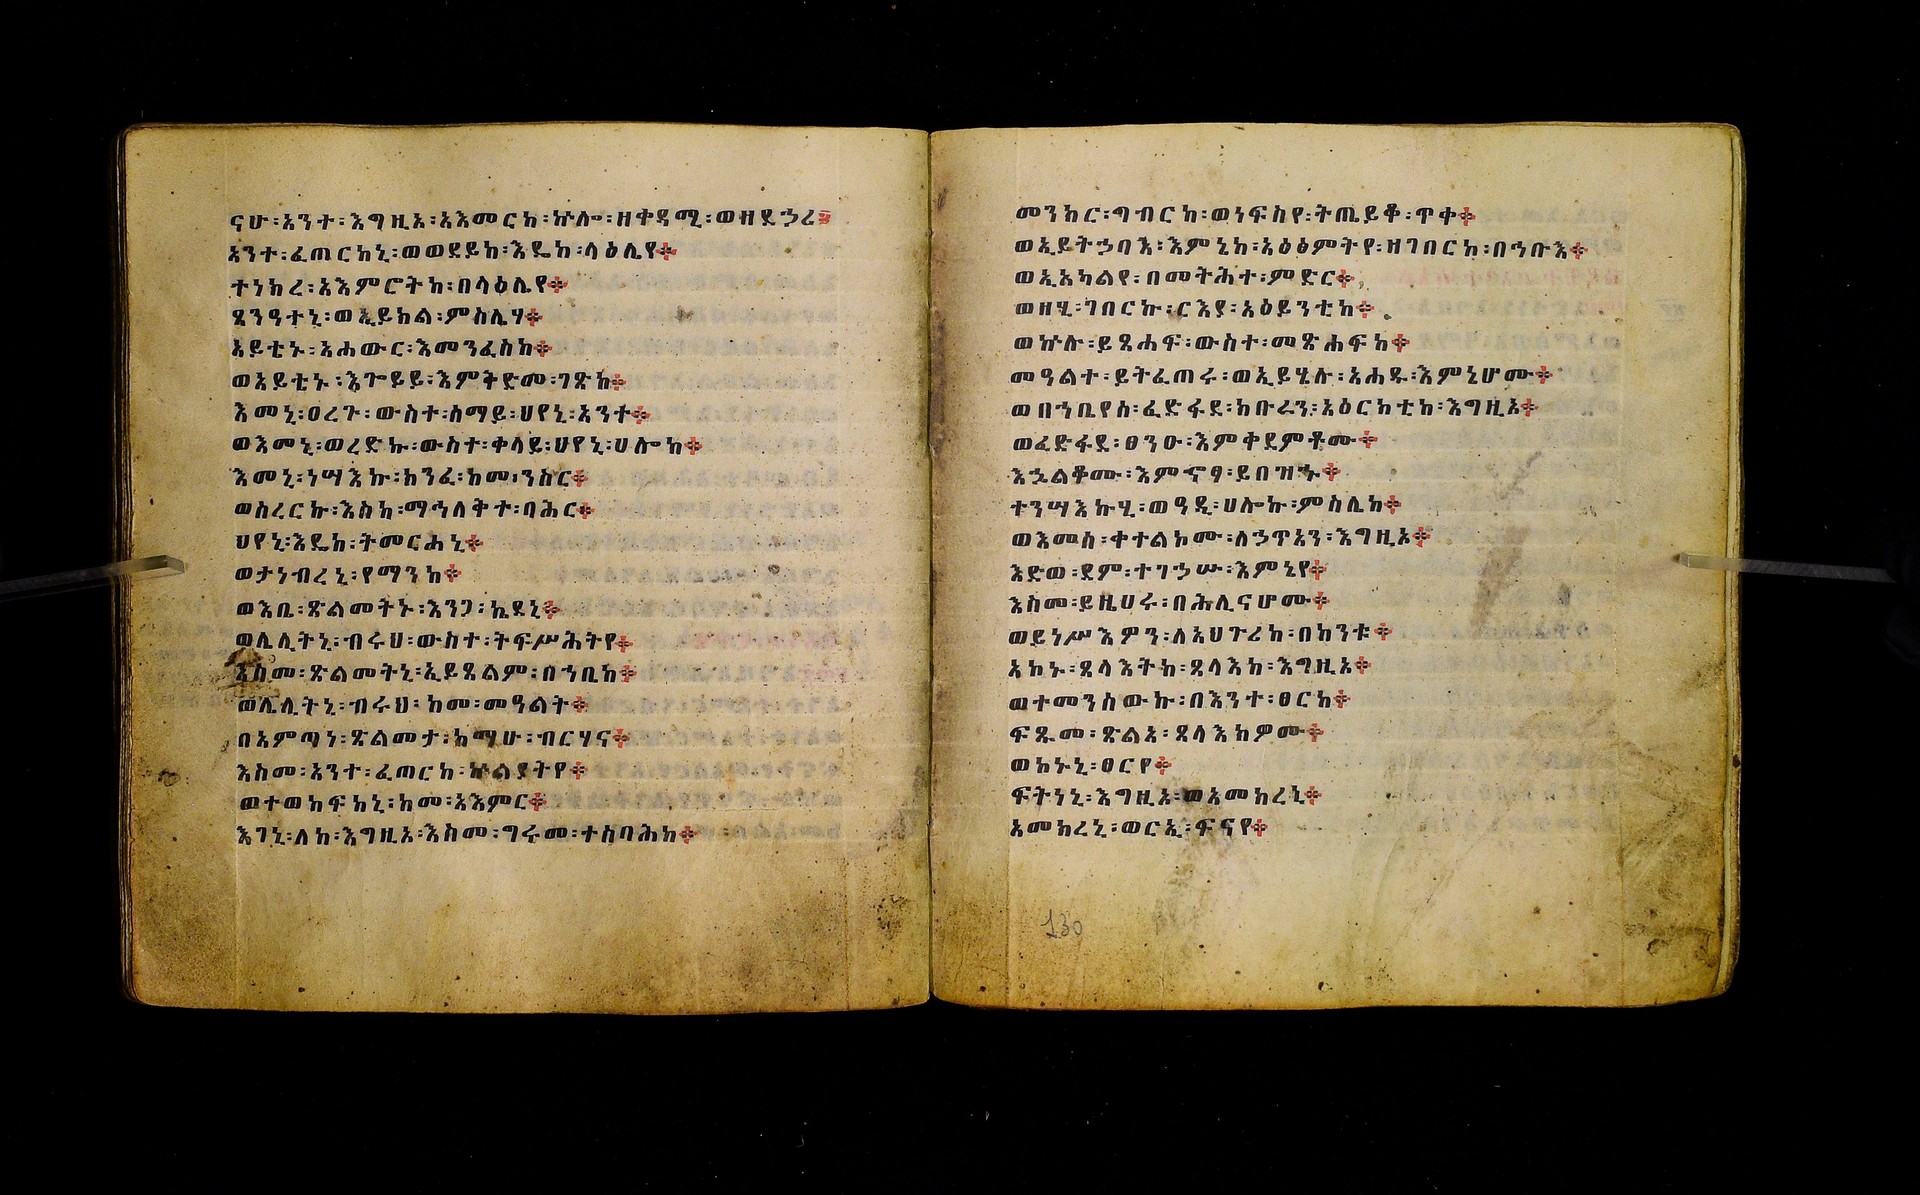 ናሁ፡አንተ፡እግዚአ፡አእመርከ፡ኵሎ፡ዘቀዳሚ፡ወዘደኃረ፨
አንተ፡ፈጠርከኒ፡ወወደይከ፡እዴከ፡ላዕሌየ፨
ተነከረ፡አእምሮትከ፡በላዕሌየ፨
ጸንዓተኒ፡ወኢይክል፡ምስሌሃ፨
አይቴኑ፡አሐውር፡እመንፈስከ፨
ወአይቴኑ፡እጐይይ፡እምቅድመ፡ገጽከ፨
እመኒ፡ዐረጉ፡ውስተ፡ሰማይ፡ህየኒ፡አንተ፨
ወእመኒ፡ወረድኩ፡ውስተ፡ቀላይ፡ህየኒ፡ሀሎከ፨
እመኒ፡ነሣእኩ፡ክንፈ፡ከመ፡ንስር፨
ወሰረርኩ፡እስከ፡ማኅለቅተ፡ባሕር፨
ህየኒ፡እዴከ፡ትመርሐኒ፨
ወታነብረኒ፡የማንከ፨
ወእቤ፡ጽልመትኑ፡እንጋ፡ኬደኒ፨
ወሌሊትኒ፡ብሩህ፡ውስተ፡ትፍሥሕትየ፨
እስመ፡ጽልመትኒ፡ኢይጸልም፡በኀቤከ፨
ወሌሊትኒ፡ብሩህ፡ከመ፡መዓልት፨
በአምጣነ፡ጽልመታ፡ከማሁ፡ብርሃና፨
እስመ፡አንተ፡ፈጠርከ፡ኵልያትየ፨
ወተወከፍከኒ፡ከመ፡አእምር፨
እገኒ፡ለከ፡እግዚአ፡እስመ፡ግሩመ፡ተሰባሕከ፨
መንክር፡ግብርከ፡ወነፍስየ፡ትጤይቆ፡ጥቀ፨
ወኢይትኃባእ፡እምኔከ፡አዕፅምትየ፡ዘገበርከ፡በኅቡእ፨
ወኢአካልየ፡በመትሕተ፡ምድር፨
ወዘሂ፡ገበርኩ፡ርእያ፡አዕይንቲከ፨
ወኵሉ፡ይጸሐፍ፡ውስተ፡መጽሐፍከ፨
መዓልተ፡ይትፈጠሩ፡ወኢይሄሉ፡አሐዱ፡እምኔሆሙ፨
ወበኀቤየሰ፡ፈድፋደ፡ክቡራን፡አዕርክቲከ፡እግዚአ፨
ወፈድፋደ፡ፀንዑ፡እምቀደምቶሙ፨
እኄልቆሙ፡እምኆፃ፡ይበዝኁ፨
ተንሣእኩሂ፡ወዓዲ፡ሀሎኩ፡ምስሌከ፨
ወእመሰ፡ቀተልኮሙ፡ለኃጥአን፡እግዚአ፨
ዕድወ፡ደም፡ተገኃሡ፡እምኔየ፨
እስመ፡ይዜሀሩ፡በሕሊናሆሙ፨
ወይነሥእዎን፡ለአህጉሪከ፡በከንቱ፨
አኮኑ፡ጸላእትከ፡ጸላእከ፡እግዚአ፨
ወተመንሰውኩ፡በእንተ፡ፀርከ፨
ፍጹመ፡ጽልአ፡ጸላእክዎሙ፨
ወኮኑኒ፡ፀርየ፨
ፍትነኒ፡እግዚአ፡ወአመክረኒ፨
አመክረኒ፡ወርኢ፡ፍናየ፨
130